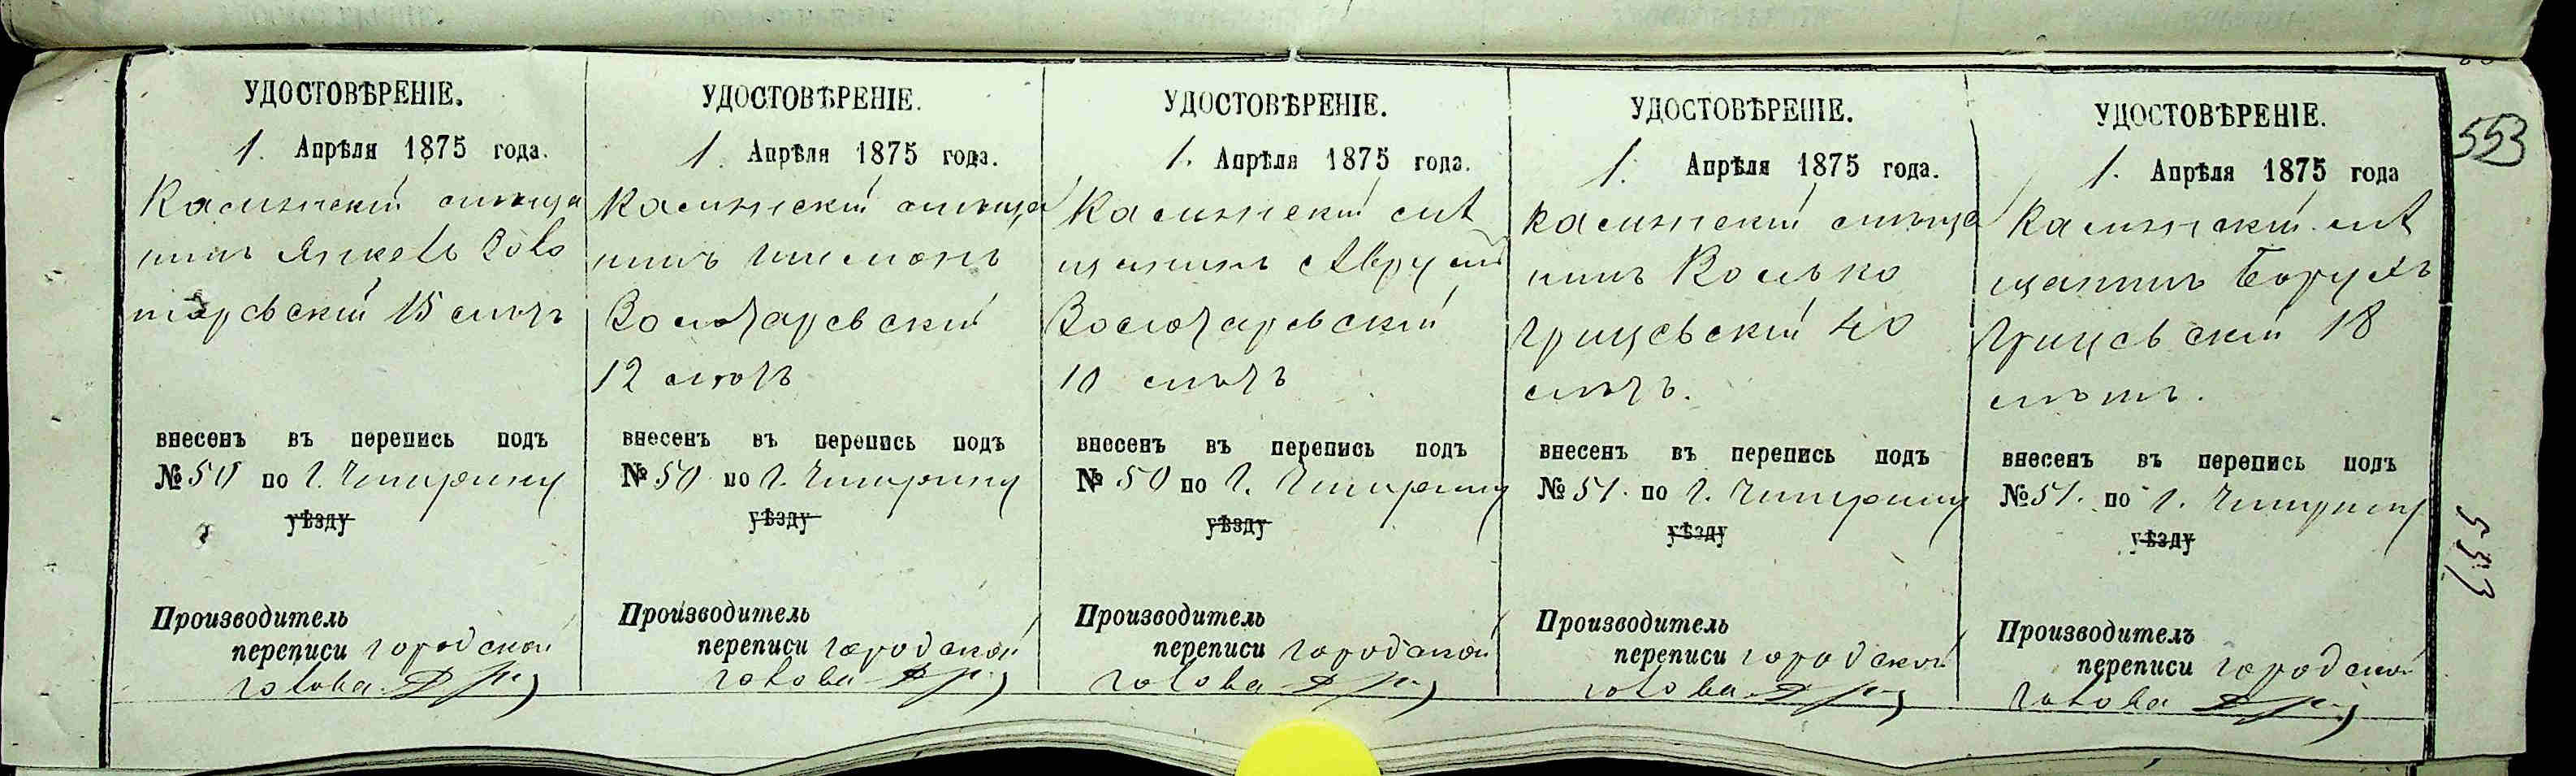 УДОСТОВѢРЕНІЕ.
1. Апрѣля 1875 года.
мѣща
нинъ Янкель Воло
15 лѣтъ
внесенъ въ перепись подъ
№ 50 по г. Чигирину
уѣзду
Производитель
переписи городской
голова
УДОСТОВѢРЕНІЕ.
1. Апрѣля 1875 года.
мѣща
нинъ Шмонь
12 лѣтъ
внесенъ въ перепись подъ
№ 50 по г. Чигирину
уѣзду
Производитель
переписи городской
голова
УДОСТОВѢРЕНІЕ.
1. Апрѣля 1875 года.
мѣ
щанинъ Аврумъ
10 лѣтъ
внесенъ въ перепись подъ
№ 50 по г. Чигирину
уѣзду
Производитель
переписи городской
голова
УДОСТОВѢРЕНІЕ.
1. Апрѣля 1875 года.
мѣща
нинъ Волько
Грицевскій 40
лѣтъ.
внесенъ въ перепись подъ
№ 51. по г. Чигирину
уѣзду
Производитель
переписи городской
голова
УДОСТОВѢРЕНІЕ.
1. Апрѣля 1875 года
мѣ
щанинъ Борухъ
Грицевскій 18
лѣтъ.
внесенъ въ перепись подъ
№ 51. по г. Чигирину
уѣзду
Производитель
переписи городской
голова
553
553